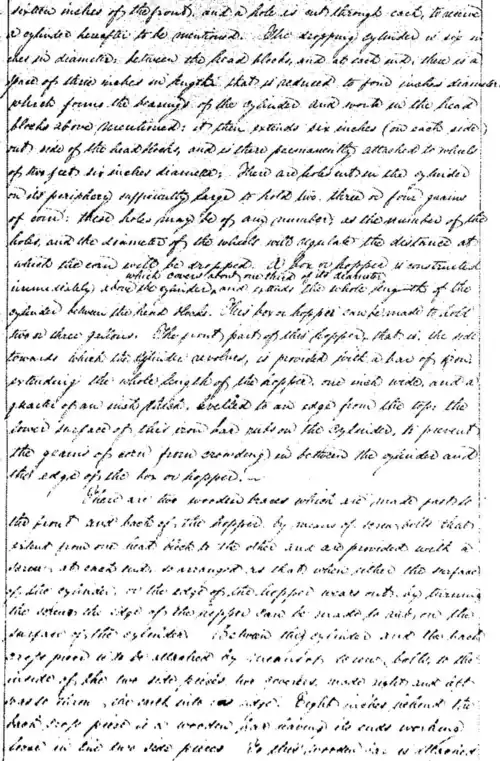 sixteen inches of the front, and a hole is cut through each, to receive
a cylinder hereafter to be mentioned. The dropping cylinder is six in
ches in diameter, between the head blocks, and at each end, there is a
space of three inches in length that is reduced to four inches diameter
which forms the bearings of the cylinder and work in the head
blocks above mentioned; it then extends six inches (on each side)
out side of the head blocks, and is there permanently attached to wheels
of two feet six inches diameter; There are holes cut in the cylinder
on its periphery sufficiently large to hold two three or four grains
of corn: these holes may be of any number, as the number of the
holes, and the diameter of the wheels will regulate the distance at
which the corn will be dropped. A box or hopper is constructed
which covers about one third of its diameter
immediately above the cylinder, and extends the whole length of the
cylinder between the head blocks. This box or hopper can be made to hold
two or three gallons. The front part of this hopper, that is, the side
towards which the cylinder revolves, is provided with a bar of iron
extending the whole length of the hopper, one inch wide, and a
quarter of an inch thick, beveled to an edge from the top; the
lower surface of this iron bar rubs on the cylinder, to prevent
the grains of corn from crowding in between the cylinder and
the edge of the box or hopper.
There are two wooden braces which are made fast to
the front and back of the hopper by means of screw bolts that
extend from one head block to the other and are provided with a
screw at each end, so arranged as that when either the surface
of the cylinder or the edge of the hopper wears out, by turning
the screws the edge of the hopper can be made to rub on the
surface of the cylinder. Between this cylinder and the back
cross piece is to be attached by means of screw bolts, to the
inside of the two side pieces two coverers made right and left
so as to throw the earth into a ridge. Eight inches behind the
back cross piece is a wooden bar having its ends working
loose in the two side pieces To this wooden bar is attached